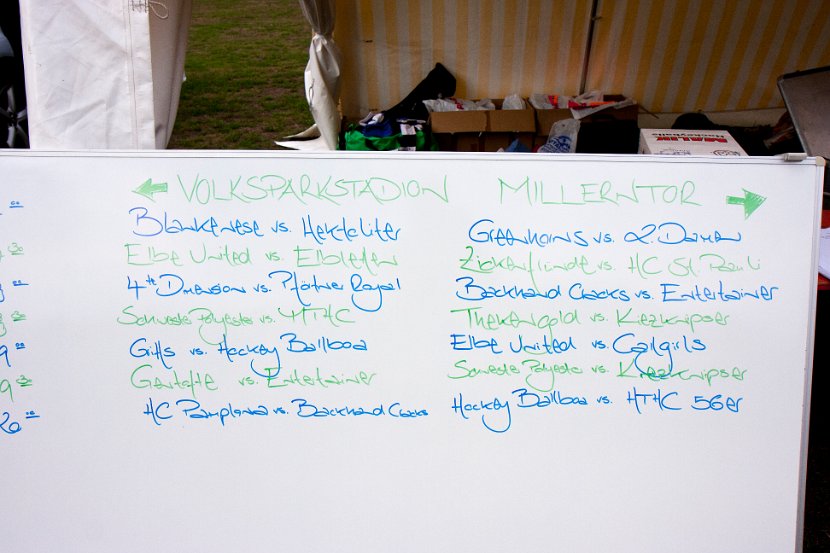 ← VOLKSPARKSTADION MILLERNTOR →
Blankenese vs. Hektoliter Greenhorns vs. 2. Damen
Elbe United vs. Elbletten Zickenfründe vs. HC St. Pauli
4th Dimension vs. Pförtner Royal Backhand Cracks vs. Entertainer
Schweste Polyester vs. HTHC Thekengold vs. Kiezknipser
9 Giffls vs. Hockey Ballboa Elbe United vs. Callgirls
9 30 vs. Entertainer Schweste Polyester vs. Kiezknipser
20 00 HC Pamplona vs. Backhand Cracks Hockey Ballboa vs. HTHC 56er